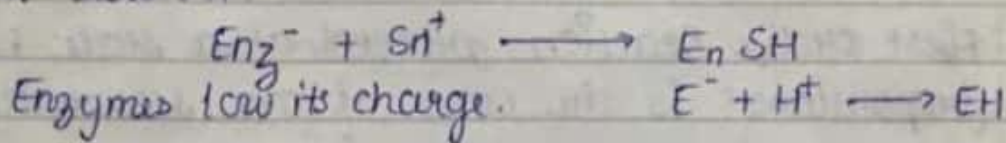 Enz⁻ + Sn⁺ ⟶ En SH
Enzymes low its charge. E⁻ + H⁺ ⟶ EH